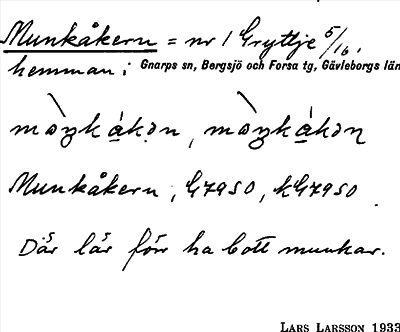 Munkåkern = nr 1 Gryttje 5/16.
hemman i Gnarps sn, Bergsjö och Forsa tg, Gävleborgs län
Munkåkern, G7950, kG7950.
Där lär förr ha bott munkar.
LARS LARSSON 1933